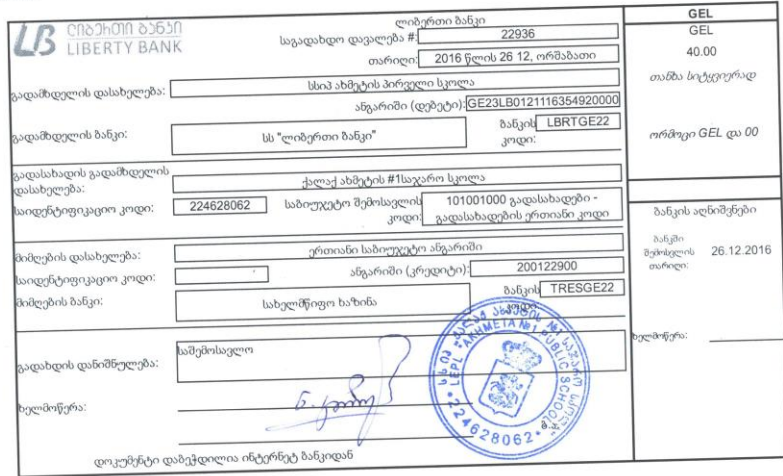 ლიბერთი ბანკი
LIBERTY BANK
ლიბერთი ბანკი
საგადახდო დავალება #: 22936
თარიღი: 2016 წლის 26 12, ორშაბათი
გადამხდელის დასახელება: სსიპ ახმეტის პირველი სკოლა
ანგარიში (დებეტი): GE23LB0121116354920000
გადამხდელის ბანკი: სს "ლიბერთი ბანკი" ბანკის კოდი: LBRTGE22
გადასახადის გადამხდელის დასახელება: ქალაქ ახმეტის #1საჯარო სკოლა
საიდენტიფიკაციო კოდი: 224628062 საბიუჯეტო შემოსავლის კოდი: 101001000 გადასახადები - გადასახადების ერთიანი კოდი
მიმღების დასახელება: ერთიანი საბიუჯეტო ანგარიში
საიდენტიფიკაციო კოდი: ანგარიში (კრედიტი): 200122900
მიმღების ბანკი: სახელმწიფო ხაზინა ბანკის კოდი: TRESGE22
გადახდის დანიშნულება: საშემოსავლო
ხელმოწერა:
ბ.ა
დოკუმენტი დაბეჭდილია ინტერნეტ ბანკიდან
GEL
GEL
40.00
თანხა სიტყვიერად
ორმოცი GEL და 00
ბანკის აღნიშვნები
ბანკში შემოსვლის თარიღი: 26.12.2016
ხელმოწერა:
სსიპ ქალაქ ახმეტის №1 საჯარო სკოლა
LEPL "AKHMETA №1 PUBLIC SCHOOL"
224628062